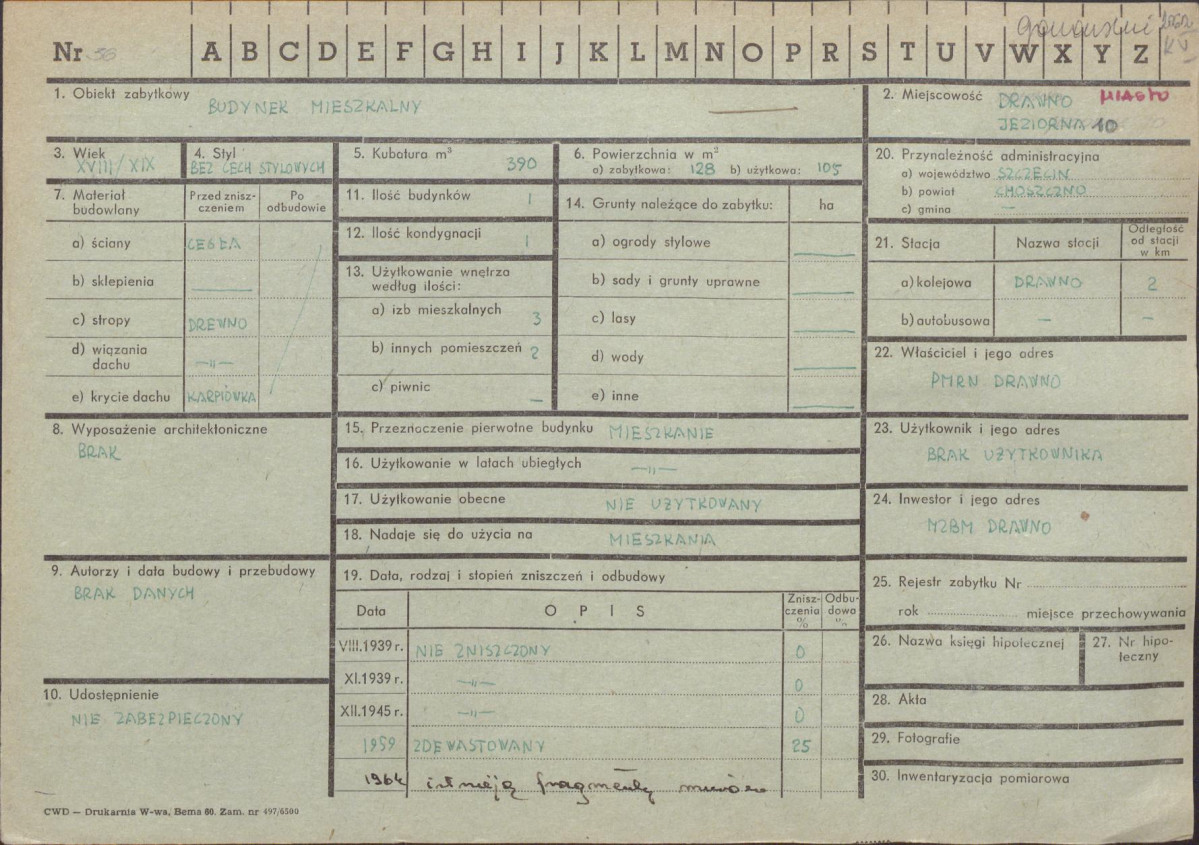 Nr 38 A B C D E F G H I J K L M N O P R S T U V W X Y Z
1. Obiekt zabytkowy
BUDYNEK MIESZKALNY
2. Miejscowość DRAWNO MIASTO
JEZIORNA 10
3. Wiek
XVIII/XIX
4. Styl
BEZ CECH STYLOWYCH
5. Kubatura m³
390
6. Powierzchnia w m²
a) zabytkowa: 128 b) użytkowa: 105
20. Przynależność administracyjna
a) województwo SZCZECIN
b) powiat CHOSZCZNO
c) gmina —
7. Materiał budowlany
Przed znisz-
czeniem
Po
odbudowie
a) ściany CEGŁA
b) sklepienia —
c) stropy DREWNO
d) wiązania
dachu —„—
e) krycie dachu KARPIÓWKA
11. Ilość budynków 1
12. Ilość kondygnacji 1
13. Użytkowanie wnętrza
według ilości:
a) izb mieszkalnych 3
b) innych pomieszczeń 2
c) piwnic —
14. Grunty należące do zabytku: ha
a) ogrody stylowe —
b) sady i grunty uprawne —
c) lasy —
d) wody —
e) inne —
21. Stacja Nazwa stacji
Odległość
od stacji
w km
a) kolejowa DRAWNO 2
b) autobusowa — —
22. Właściciel i jego adres
PMRN DRAWNO
8. Wyposażenie architektoniczne
BRAK
15. Przeznaczenie pierwotne budynku MIESZKANIE
16. Użytkowanie w latach ubiegłych —„—
17. Użytkowanie obecne NIE UŻYTKOWANY
18. Nadaje się do użycia na MIESZKANIA
23. Użytkownik i jego adres
BRAK UŻYTKOWNIKA
24. Inwestor i jego adres
MZBM DRAWNO
9. Autorzy i data budowy i przebudowy
BRAK DANYCH
10. Udostępnienie
NIE ZABEZPIECZONY
19. Data, rodzaj i stopień zniszczeń i odbudowy
Data OPIS
Znisz-
czenia
%
Odbu-
dowa
%
VIII.1939 r. NIE ZNISZCZONY 0
XI.1939 r. —„— 0
XII.1945 r. —„— 0
1959 ZDEWASTOWANY 25
1964 istnieją fragmenty murów
25. Rejestr zabytku Nr
rok miejsce przechowywania
26. Nazwa księgi hipotecznej
27. Nr hipo-
teczny
28. Akta
29. Fotografie
30. Inwentaryzacja pomiarowa
CWD — Drukarnia W-wa, Bema 60. Zam. nr 497/6500